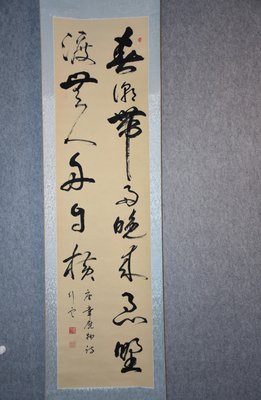 春潮帶雨晚來急野
渡無人舟自橫
唐韋應物詩